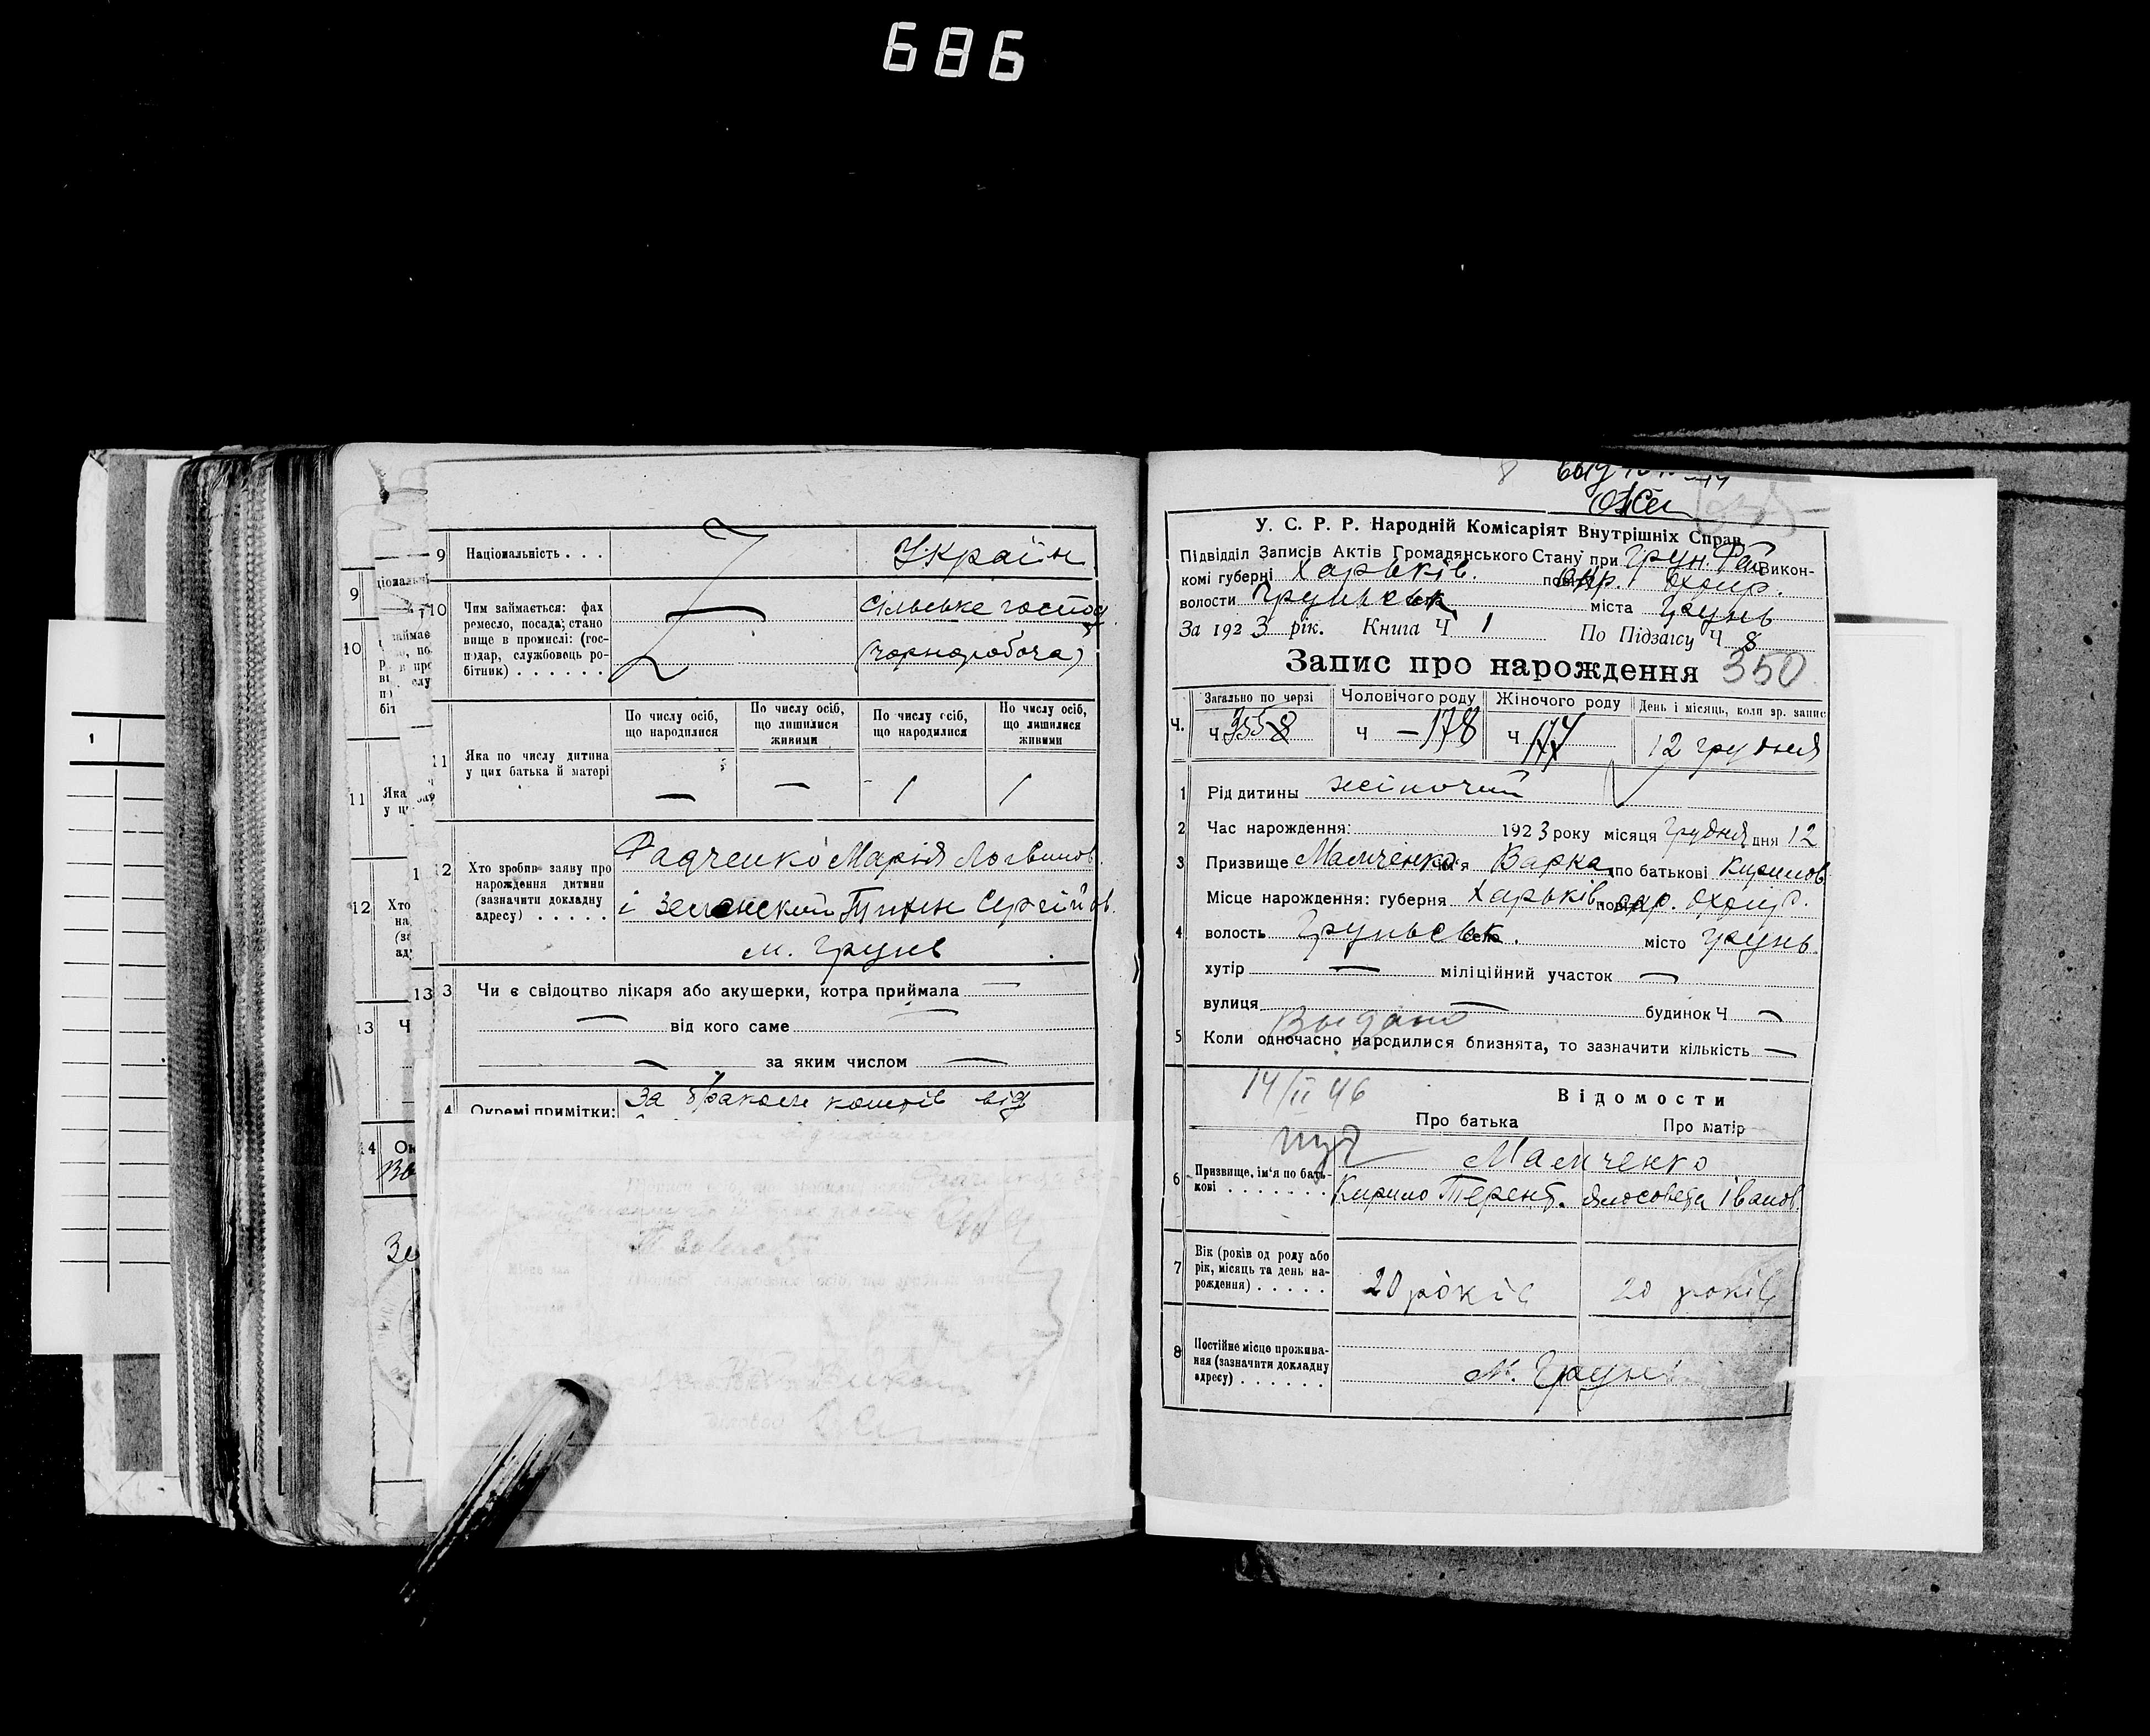 686
9 Національність . . . Україн
10 Чим займається: фах
ремесло, посада, стано
вище в промислі: (гос-
подар, службовець ро-
бітник) . . . . . .
сільське господ.
(чорноробоча)
По числу осіб, що народилися
По числу осіб, що лишилися живими
По числу осіб, що народилися
По числу осіб, що лишилися живими
11 Яка по числу дитина
у цих батька й матері
— — 1 1
12 Хто зробив заяву про
нарождення дитини
(зазначити докладну
адресу) . . . . .
Радченко Марія Логвинов.
і Зеленский Тихон Сергійов.
м. Грунь
13 Чи є свідоцтво лікаря або акушерки, котра приймала —
— від кого саме —
— за яким числом —
4 Окремі примітки: За браком коштів від
У. С. Р. Р. Народній Комісаріят Внутрішніх Справ
Підвідділ Записів Актів Громадянського Стану при Грун. Рай викон-
комі губерні Харьків. повіт окр. Охтир.
волости Груньськ. міста Грунь
За 1923 рік. Книга Ч 1 По Підзаґсу Ч 8
Запис про нарождення 350
Ч. Загально по черзі Чоловічого роду Жіночого роду День і місяць, коли зр. запис
Ч Ч —178 Ч 12 грудня
1 Рід дитины жіночий
2 Час нарождення: 1923 року місяця Грудня дня 12
3 Призвище Мамченко ім'я Варка по батькові Кирилов.
Місце нарождення: губерня Харьків повіт окр. Охтир.
4 волость Груньськ. село місто Грунь
хутір — міліційний участок —
вулиця — будинок Ч —
Выдано
5 Коли одночасно народилися близнята, то зазначити кількість —
14/II 46
Відомости
Про батька Про матір
6 Призвище, ім'я по бать-
кові . . . . . . .
Мамченко
Кирило Терент. Ялосовета Іванов.
7 Вік (років од роду або
рік, місяць та день на-
рождення) . . . . .
20 років 20 років
8 Постійне місце прожива-
ння (зазначити докладну
адресу) . . . . . .
м. Грунь